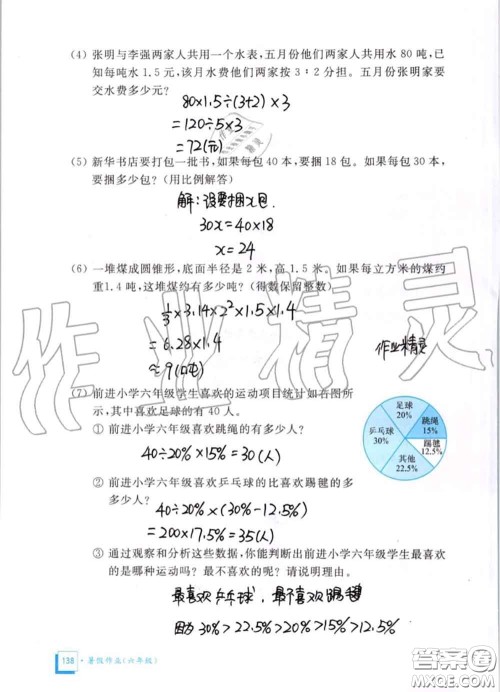 (4) 张明与李强两家人共用一个水表,五月份他们两家人共用水 80 吨,已
知每吨水 1.5 元,该月水费他们两家按 3∶2 分担。五月份张明家要
交水费多少元?
80×1.5÷(3+2)×3
=120÷5×3
=72(元)
(5) 新华书店要打包一批书,如果每包 40 本,要捆 18 包。如果每包 30 本,
要捆多少包?(用比例解答)
解:设要捆x包.
30x=40×18
x=24
(6) 一堆煤成圆锥形,底面半径是 2 米,高 1.5 米。如果每立方米的煤约
重1.4 吨,这堆煤约有多少吨?(得数保留整数)
1/3×3.14×2²×1.5×1.4
=6.28×1.4
≈9(吨)
作业精灵
作业精灵
(7) 前进小学六年级学生喜欢的运动项目统计如右图所
示,其中喜欢足球的有 40 人。
足球
20%
跳绳
15%
乒乓球
30%
踢毽
12.5%
其他
22.5%
① 前进小学六年级喜欢跳绳的有多少人?
40÷20%×15%=30(人)
② 前进小学六年级喜欢乒乓球的比喜欢踢毽的多
多少人?
40÷20%×(30%-12.5%)
=200×17.5%=35(人)
③ 通过观察和分析这些数据,你能判断出前进小学六年级学生最喜欢
的是哪种运动吗?最不喜欢的呢?请说明理由。
最喜欢乒乓球,最不喜欢踢毽
因为30%>22.5%>20%>15%>12.5%
138 · 暑假作业(六年级)
答案圈
MXQE.COM